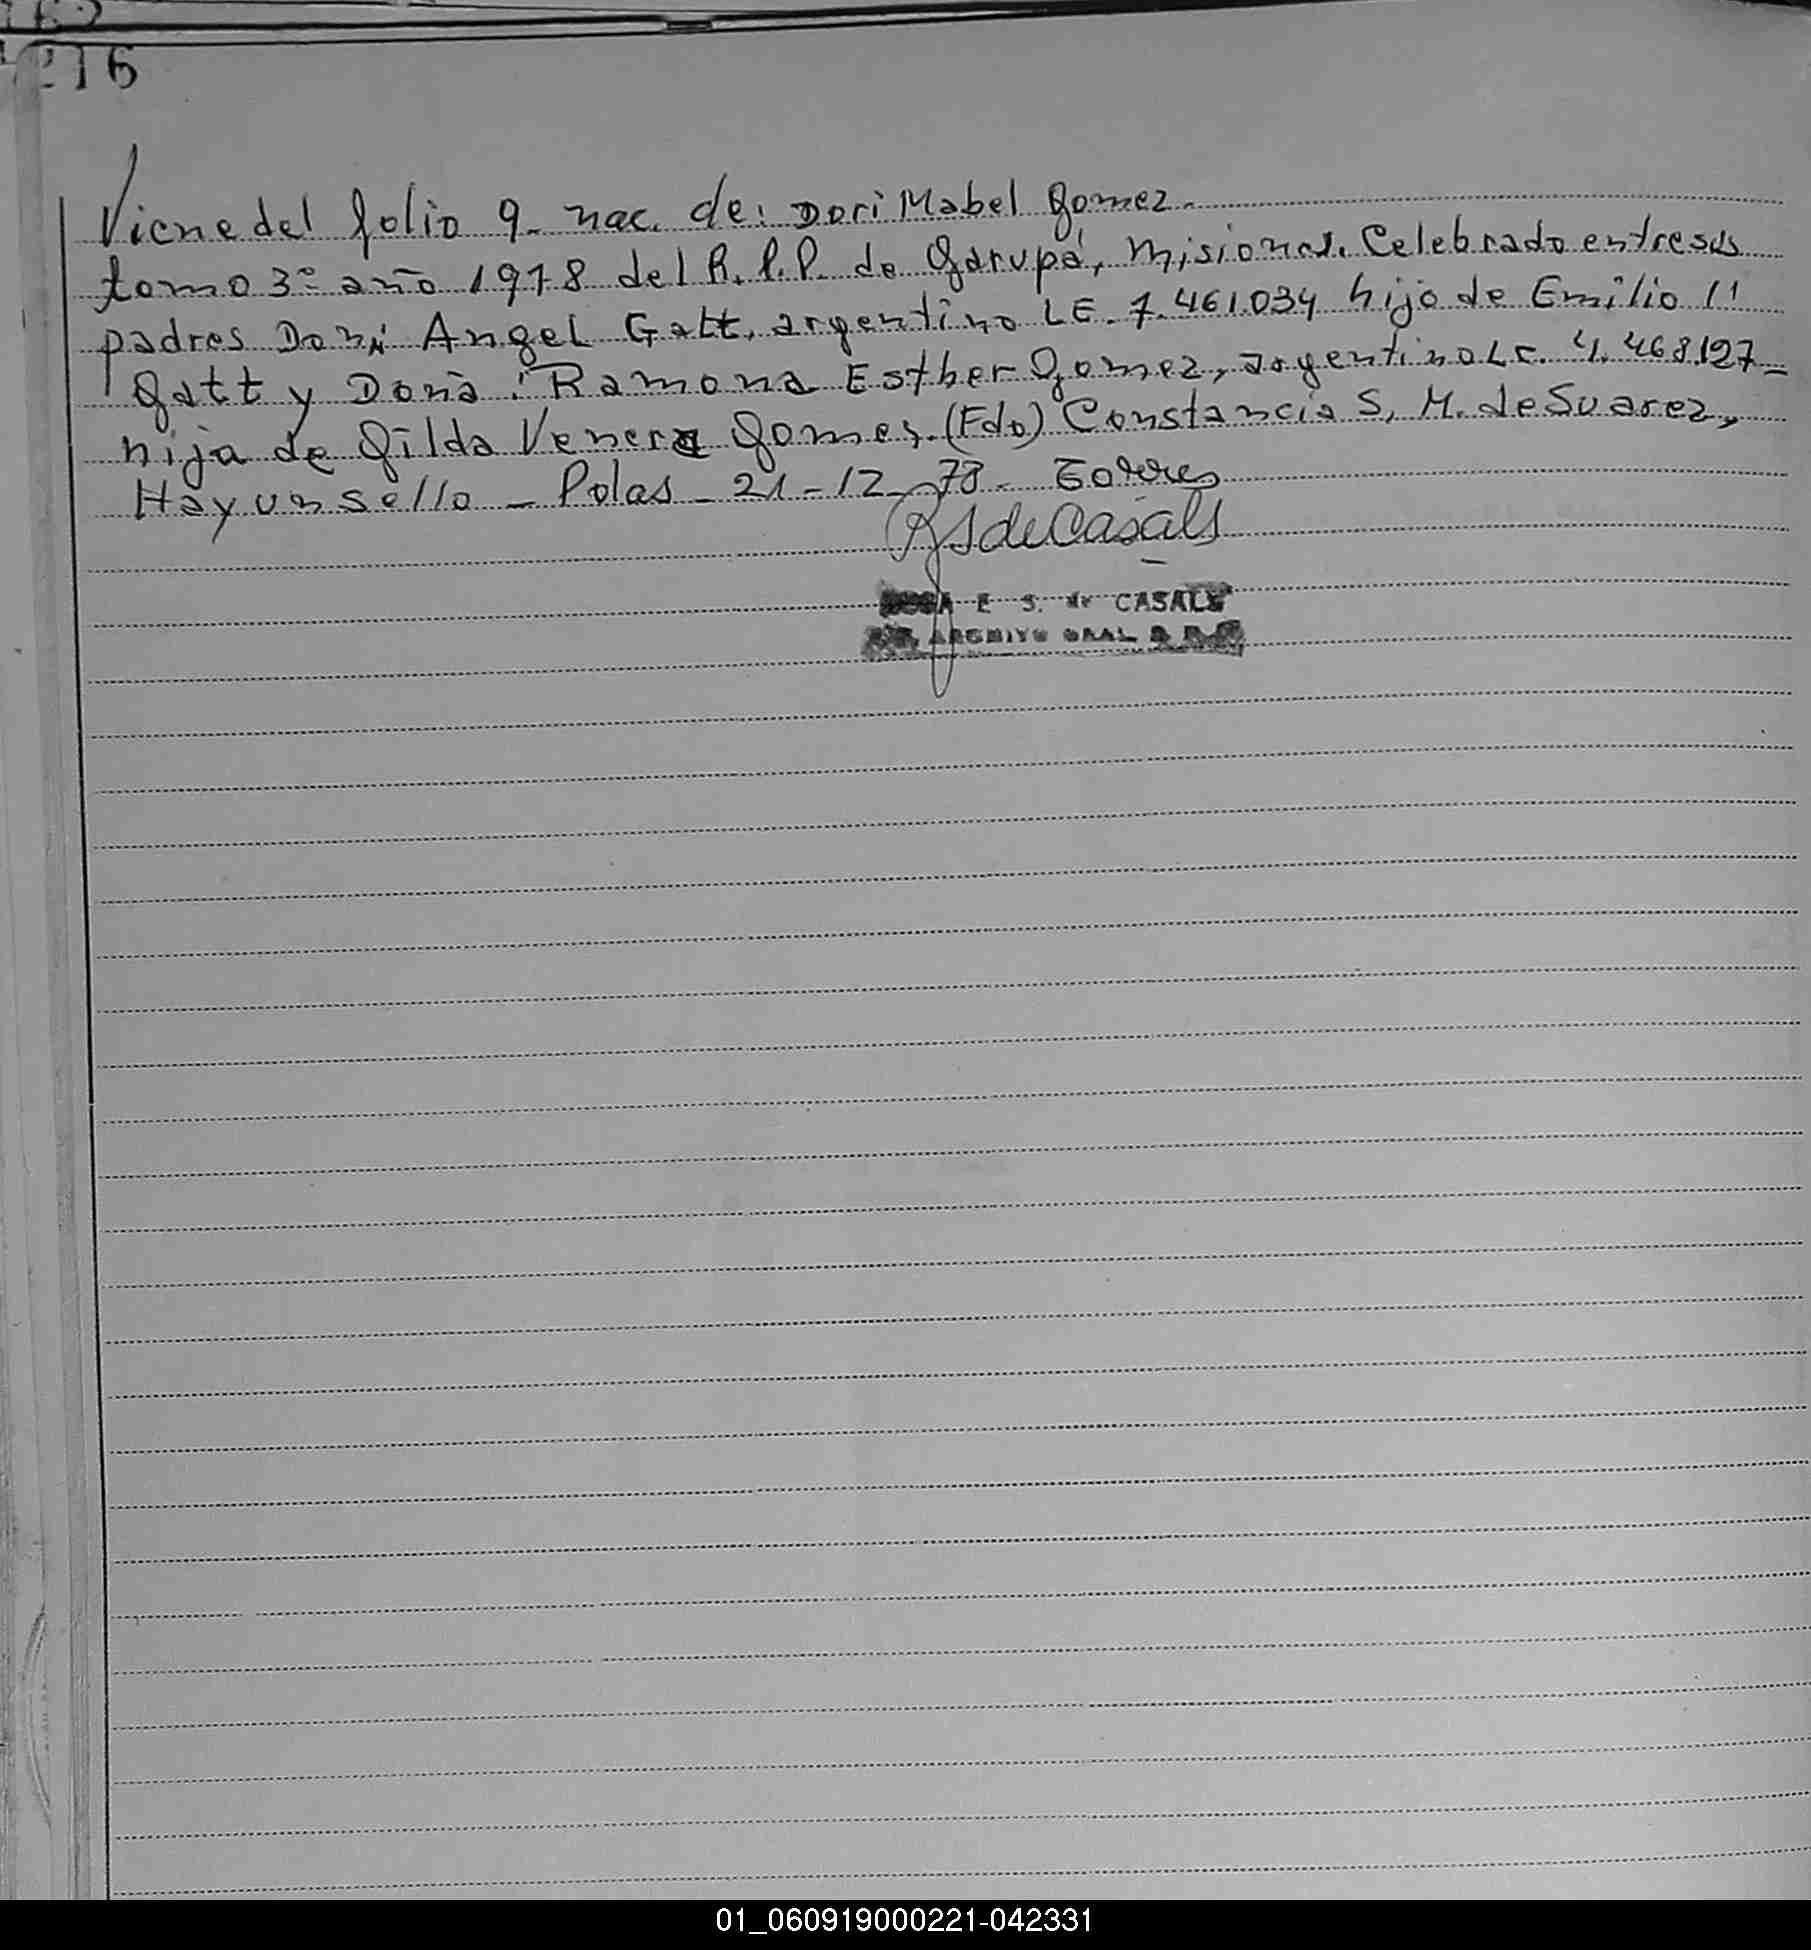 276
Viene del folio 9. nac. de: Dori Mabel Gomez.
tomo 3º año 1978 del R.P.P. de Garupá, Misiones. Celebrado entre sus
padres Don: Angel Gatt, argentino LE. 7.461.034 hijo de Emilio
Gatt y Doña: Ramona Esther Gomez, argentina LC. 4.468.127-
hija de Gilda Venera Gomes. (Fdo) Constancia S. M. de Suarez,
Hay un sello - Pdas - 21-12-78. Torres
RS de Casals
E S. de CASALS
ARCHIVO GRAL
01_060919000221-042331